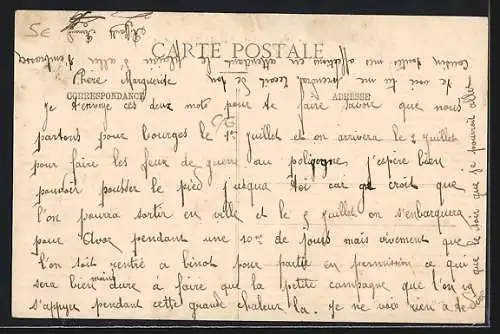 5€
CARTE POSTALE
CORRESPONDANCE
ADRESSE
Chère Marguerite
Je t'envoye ces deux mots pour te faire savoir que nous
partons pour bourges le 1er Juillet et on arrivera le 2 Juillet
pour faire les feux de guerre au poligogne j'espère bien
pouvoir pousser le pied jusqua toi car je croit que
l'on pourra sortir en ville et le Juillet on s'embarquera
pour pendant une 10ne de jours mais vivement que
l'on soit rentré a binot pour partir en permission ce qui
sera bien moins dure a faire que la petite campagne que l'on va
s'appuyer pendant cette grande chaleur la. Je ne vois rien a te
dire que je pourrait aller
te voir tu me
en attendant
Cousin toutes mes affection
t'embrasse